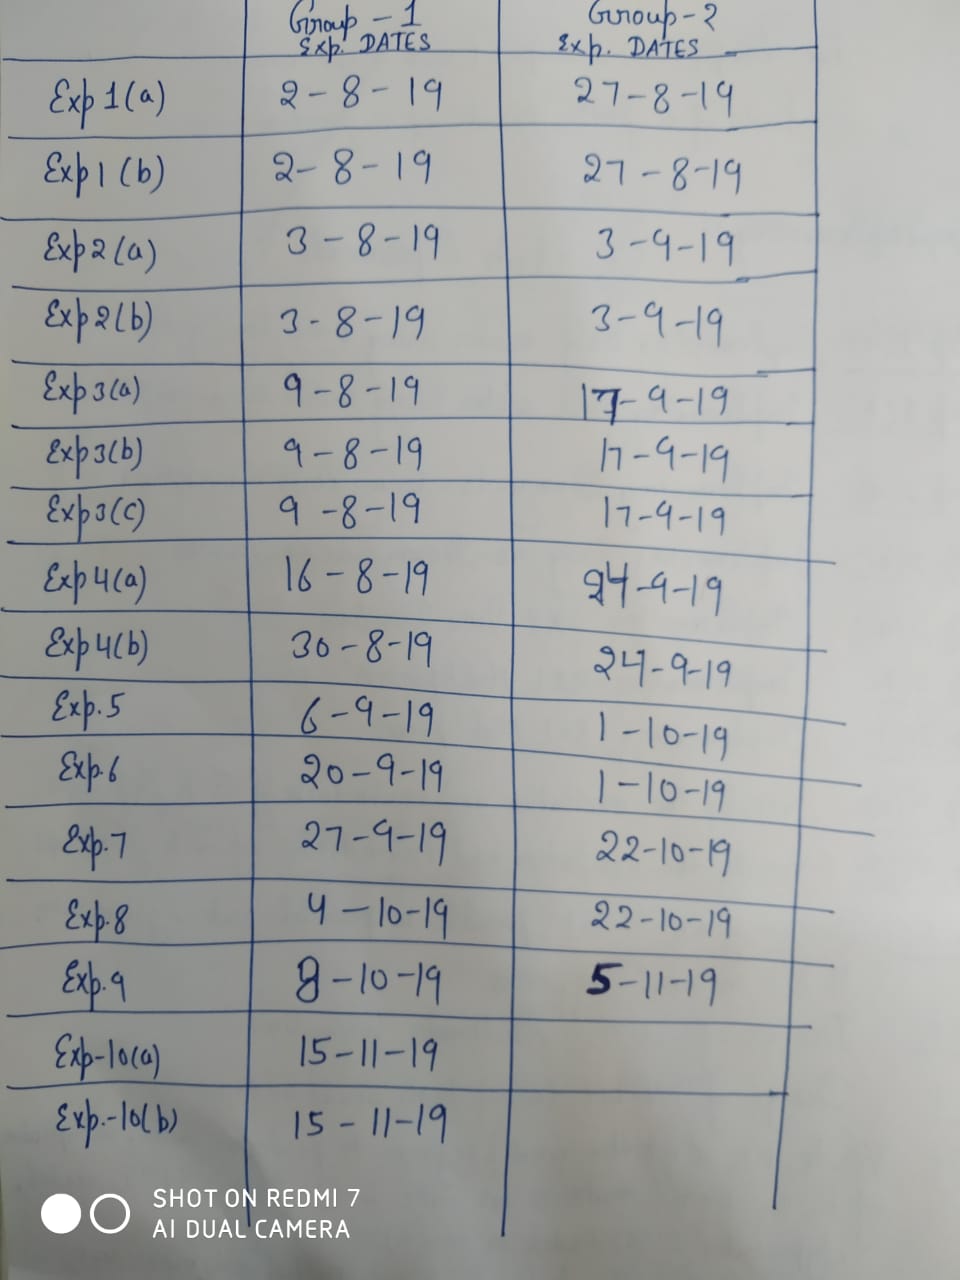 Group - 1 Group - 2
Exp. DATES Exp. DATES
Exp 1(a) 2 - 8 - 19 27 - 8 - 19
Exp 1 (b) 2 - 8 - 19 27 - 8 - 19
Exp 2 (a) 3 - 8 - 19 3 - 9 - 19
Exp 2(b) 3 - 8 - 19 3 - 9 - 19
Exp 3(a) 9 - 8 - 19 17 - 9 - 19
Exp 3(b) 9 - 8 - 19 17 - 9 - 19
Exp 3(c) 9 - 8 - 19 17 - 9 - 19
Exp 4(a) 16 - 8 - 19 24 - 9 - 19
Exp 4(b) 30 - 8 - 19 24 - 9 - 19
Exp. 5 6 - 9 - 19 1 - 10 - 19
Exp. 6 20 - 9 - 19 1 - 10 - 19
Exp. 7 27 - 9 - 19 22 - 10 - 19
Exp. 8 4 - 10 - 19 22 - 10 - 19
Exp. 9 8 - 10 - 19 5 - 11 - 19
Exp - 10(a) 15 - 11 - 19
Exp. - 10(b) 15 - 11 - 19
SHOT ON REDMI 7
AI DUAL CAMERA